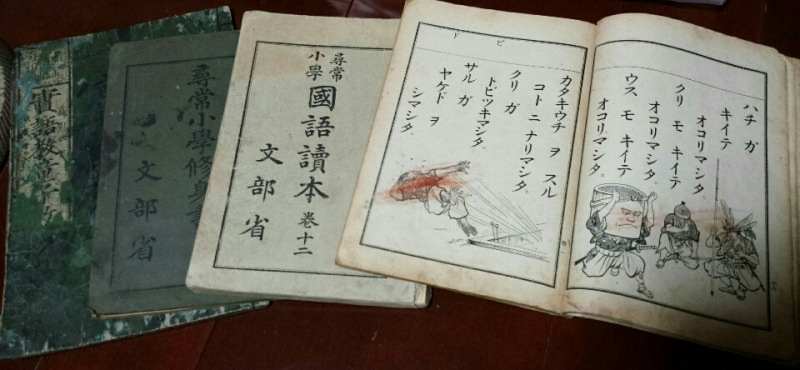 實語教童子教
尋常小學修身書
文部省
尋常
小學
國語讀本 卷十二
文部省
ハチ ガ
キイテ
オコリマシタ。
クリ モ キイテ
オコリマシタ。
ウス モ キイテ
オコリマシタ。
ビ ド
カタキウチ ヲ スル
コト ニ ナリマシタ。
クリ ガ
トビツキマシタ。
サル ガ
ヤケド ヲ
シマシタ。